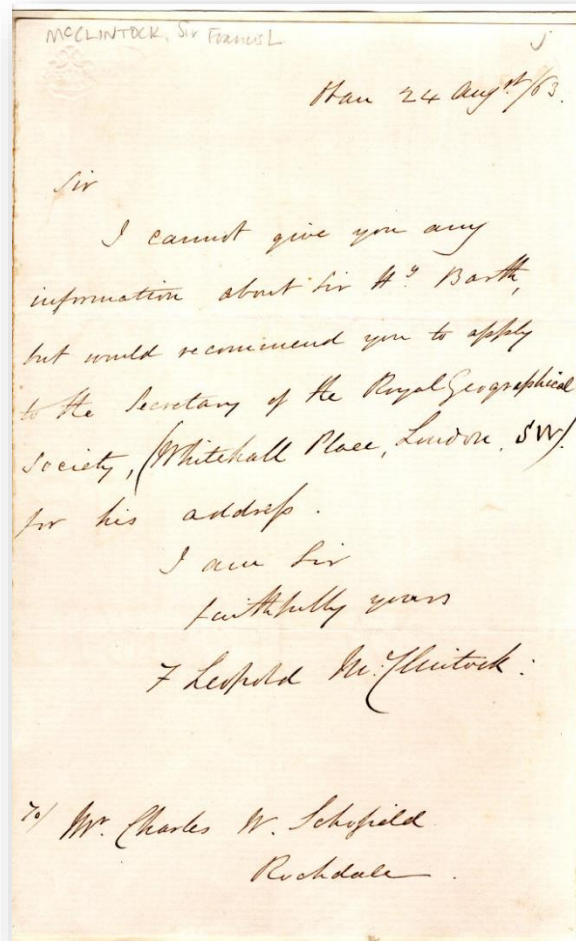 McCLINTOCK, Sir Francis L
24 Augst/63.
Sir
I cannot give you any
information about Sir Hy Barth,
but would recommend you to apply
to the Secretary of the Royal Geographical
Society, (Whitehall Place, London, SW).
for his address.
I am Sir
faithfully yours
F Leopold McClintock:
To/ Mr. Charles W. Schofield
Rochdale.